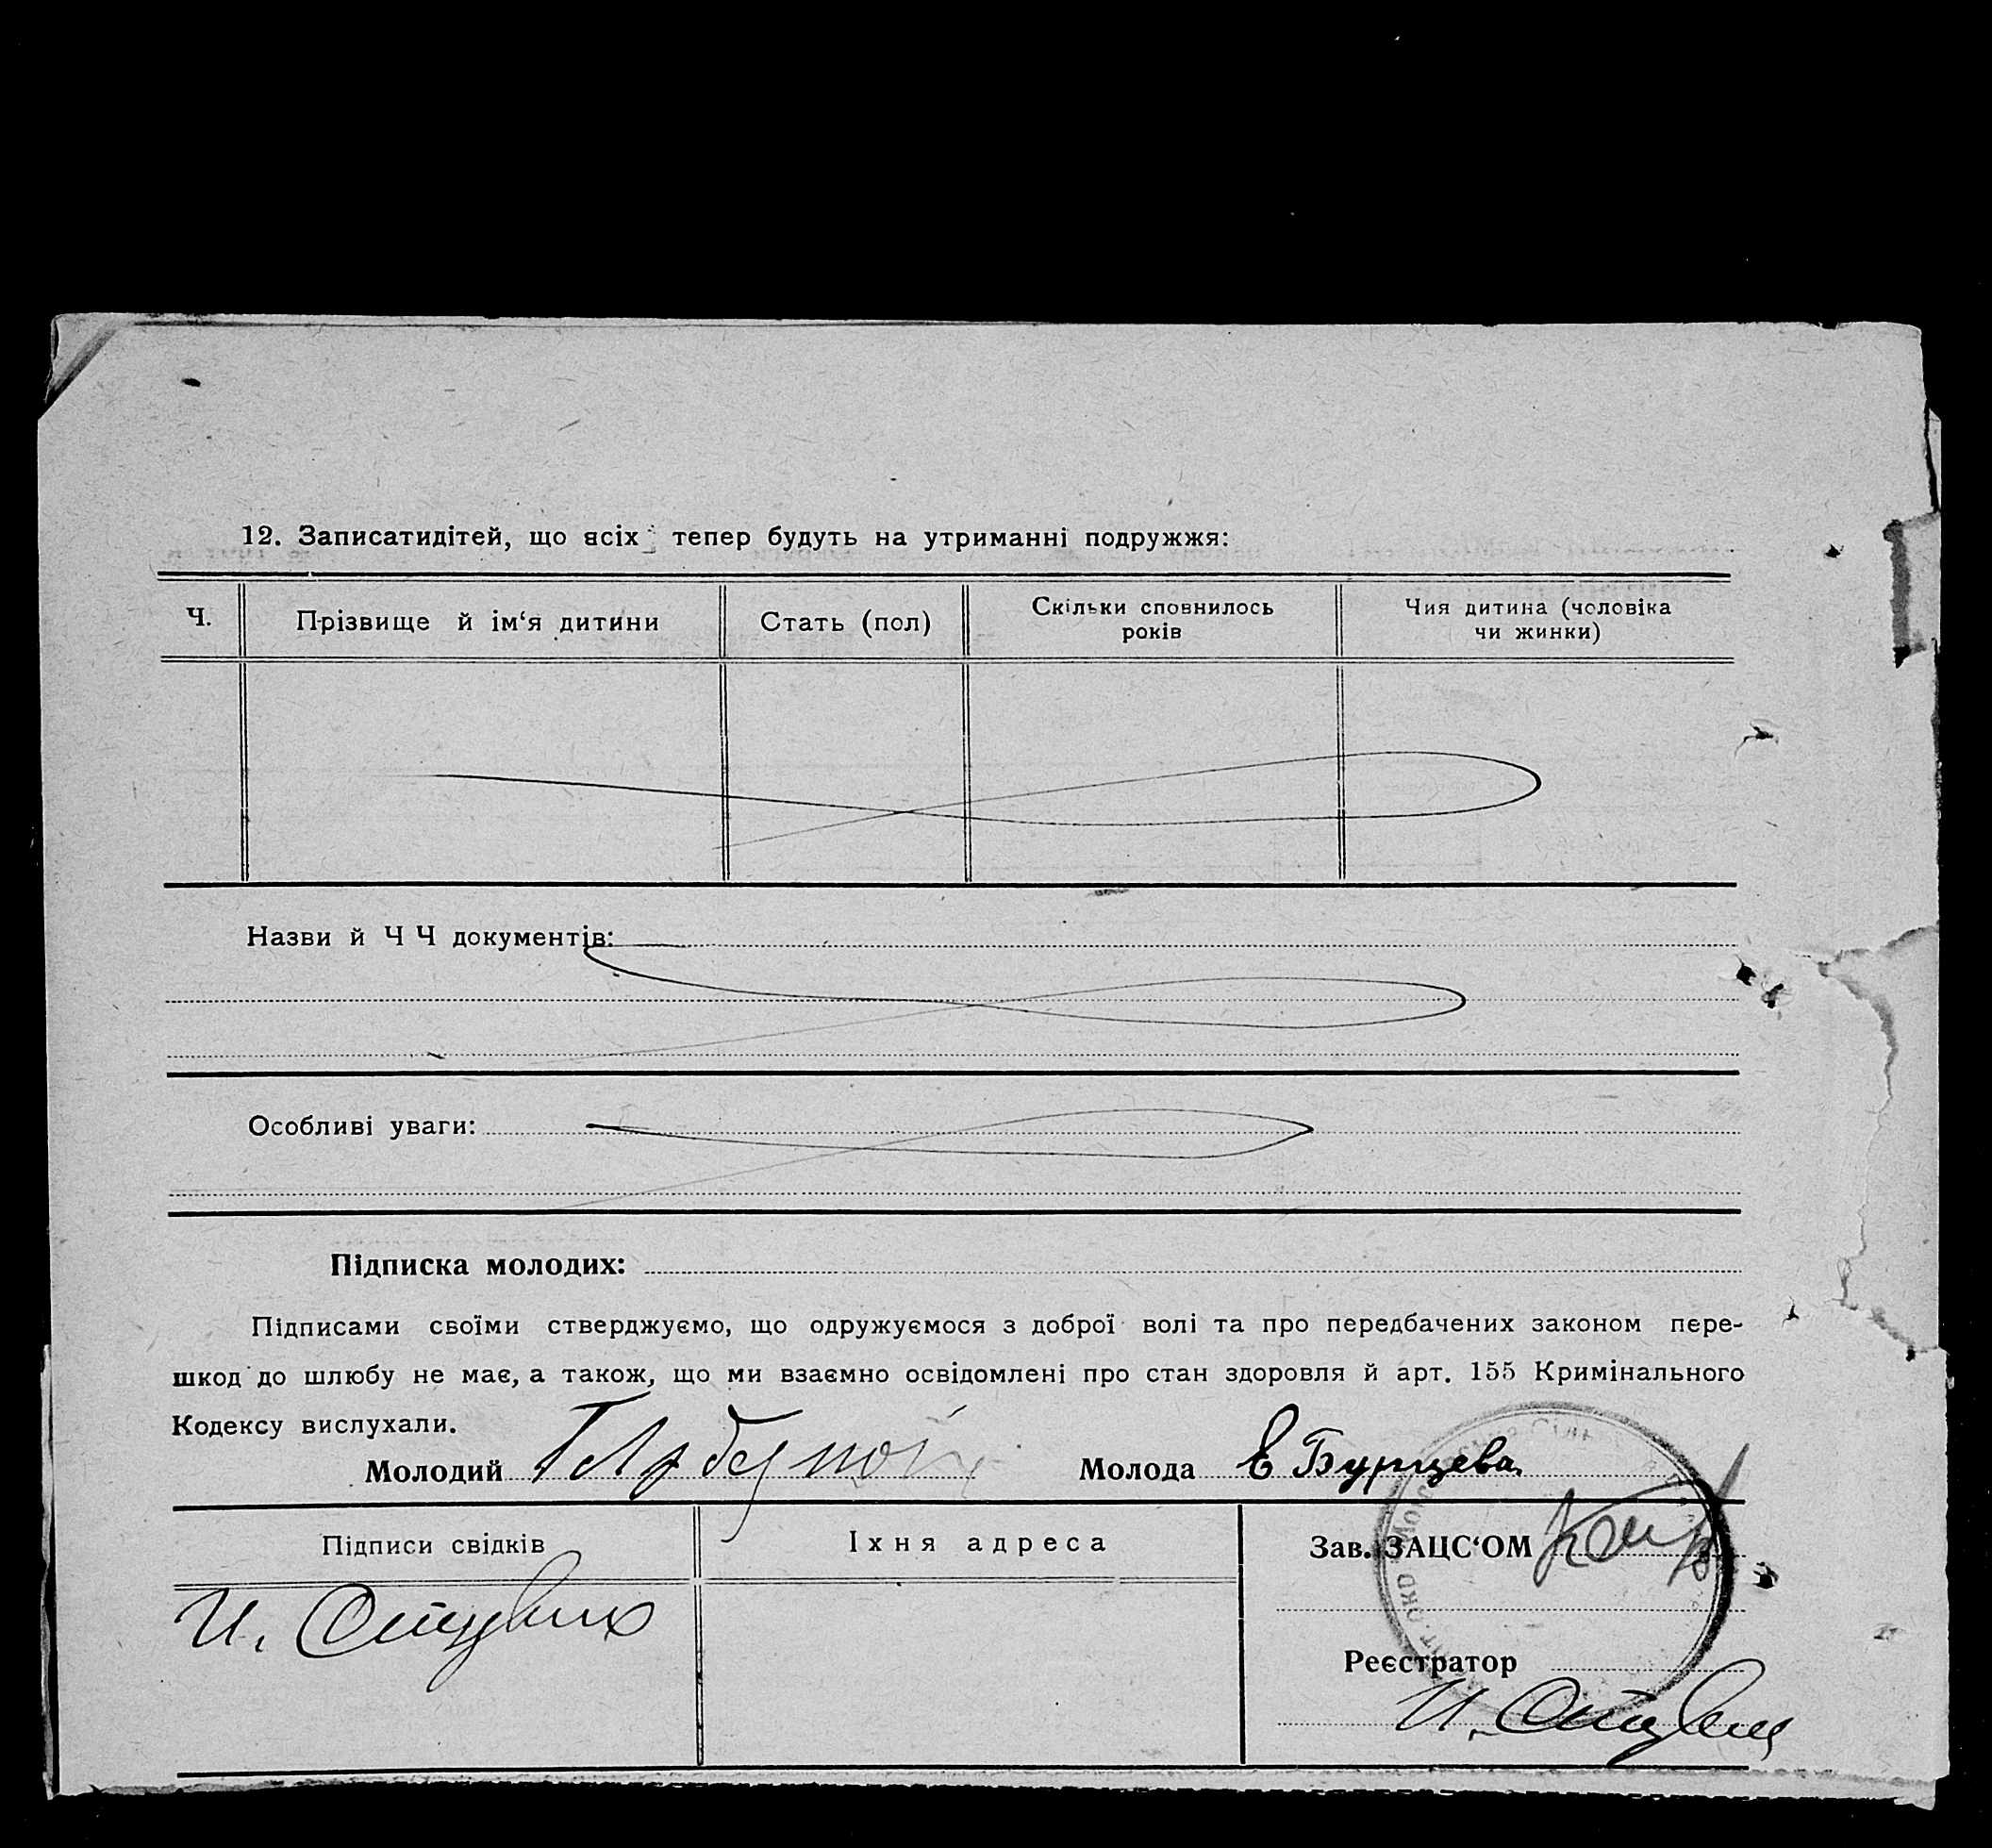 12. Записатидітей, що всіх тепер будуть на утриманні подружжя:
Ч.
Прізвище й ім‘я дитини
Стать (пол)
Скільки сповнилось
років
Чия дитина (чоловіка
чи жинки)
Назви й Ч Ч документів:
Особливі уваги:
Підписка молодих:
Підписами своїми стверджуємо, що одружуємося з доброї волі та про передбачених законом пере-
шкод до шлюбу не має, а також, що ми взаємно освідомлені про стан здоровля й арт. 155 Кримінального
Кодексу вислухали.
Молодий
Молода Е Бурцева
Підписи свідків
Їхня адреса
Зав. ЗАЦС‘ОМ
И.
Реєстратор
И.